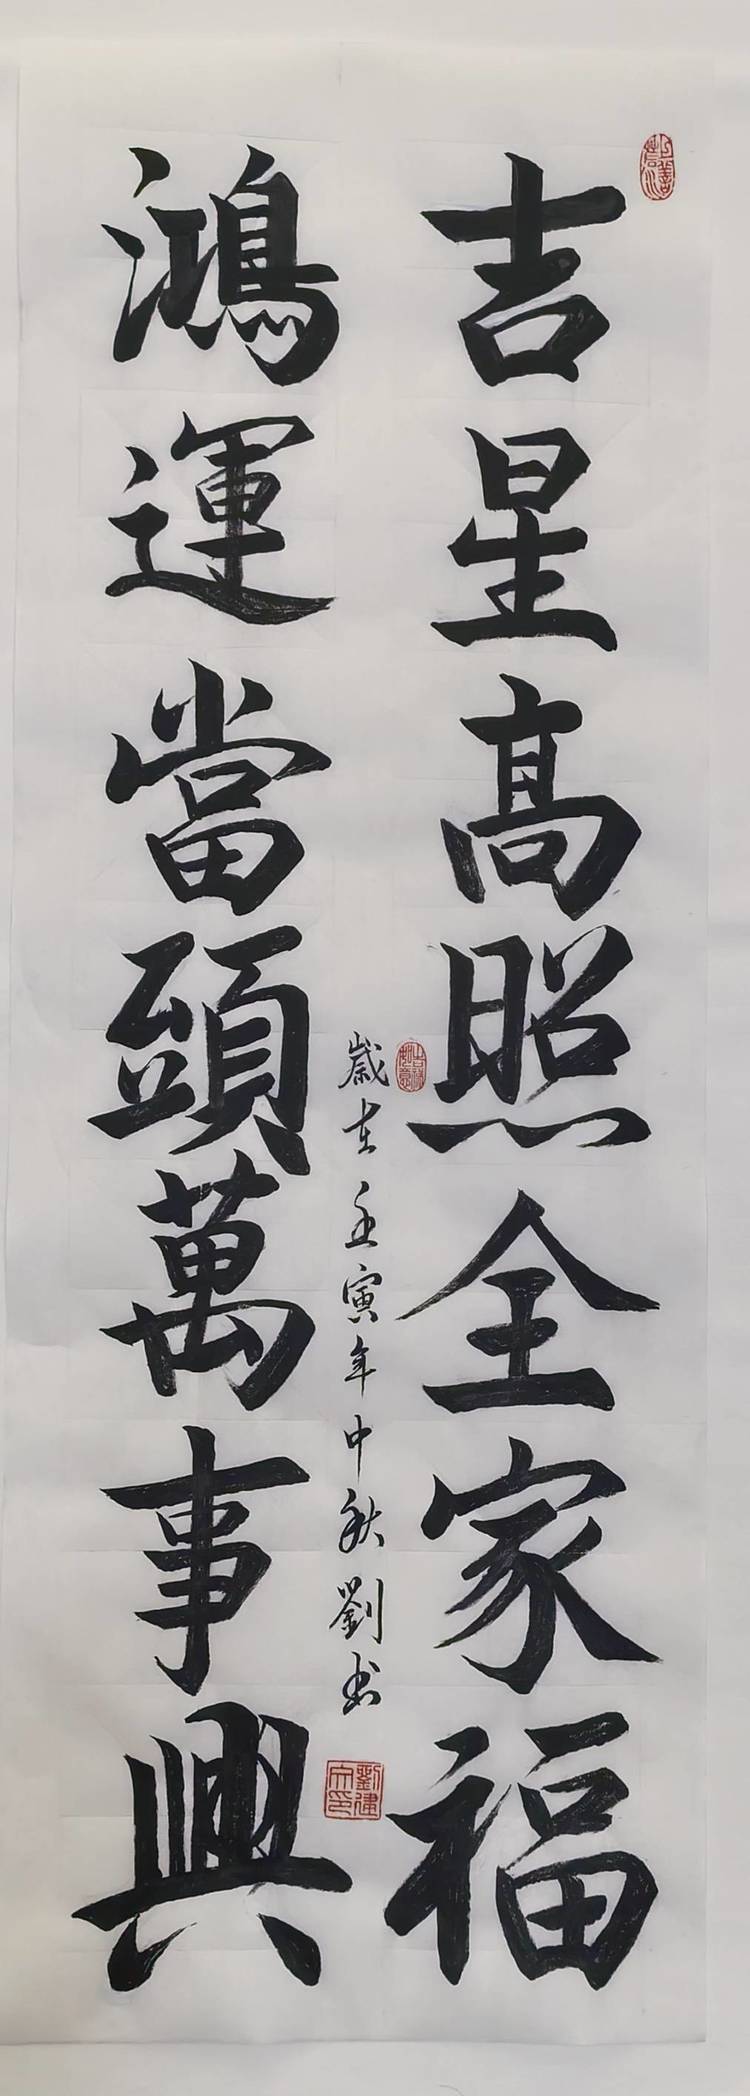 吉星高照全家福
鴻運當頭萬事興
歲在壬寅年中秋劉書
吉祥如意